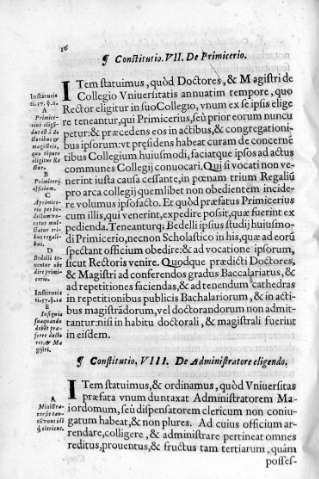 ¶ Constitutio. VII. De Primicerio.
ITem statuimus, quòd Doctores, & Magistri de
Collegio Vniuersitatis annuatim tempore, quo
Rector eligitur in suo Collegio, vnum ex se ipsis elige
re teneantur, qui Primicerius, seù prior eorum nuncu
petur: & præcedens eos in actibus, & congregationi-
bus ipsorum: vt præsidens habeat curam de concernē
tibus Collegium huiusmodi, faciatque ipsos ad actus
communes Collegij conuocari. Qui si vocati non ve-
nerint iusta causa cessante, in pœnam trium Regaliū
pro arca collegij quemlibet non obedientem incide-
re volumus ipso facto. Et quòd præfatus Primicerius
cum illis, qui venerint, expedire possit, quæ fuerint ex
pedienda. Teneanturq; Bedelli ipsius studij huiusmo-
di Primicerio, necnon Scholastico in his, quæ ad eorū
spectant officium obedire: & ad vocatione ipsorum,
sicut Rectoris venire. Quodque prædicti Doctores,
& Magistri ad conferendos gradus Baccalariatus, &
ad repetitiones faciendas, & ad tenendum cathedras
in repetitionibus publicis Bachalariorum, & in acti-
bus magistrādorum, vel doctorandorum non admit-
tantur: nisi in habitu doctorali, & magistrali fuerint
in eisdem.
Institutio
A
Primice-
B
Primicerij
officium.
C
D
Bedelli te-
Institutio
E
Insignia
¶ Constitutio. VIII. De Administratore eligendo.
ITem statuimus, & ordinamus, quòd Vniuersitas
præfata vnum duntaxat Administratorem Ma-
iordomum, seù dispensatorem clericum non coniu-
gatum habeat, & non plures. Ad cuius officium ar-
rendare, colligere, & administrare pertineat omnes
reditus, prouentus, & fructus tam tertiarum, quàm
posses-
A
Ministra-